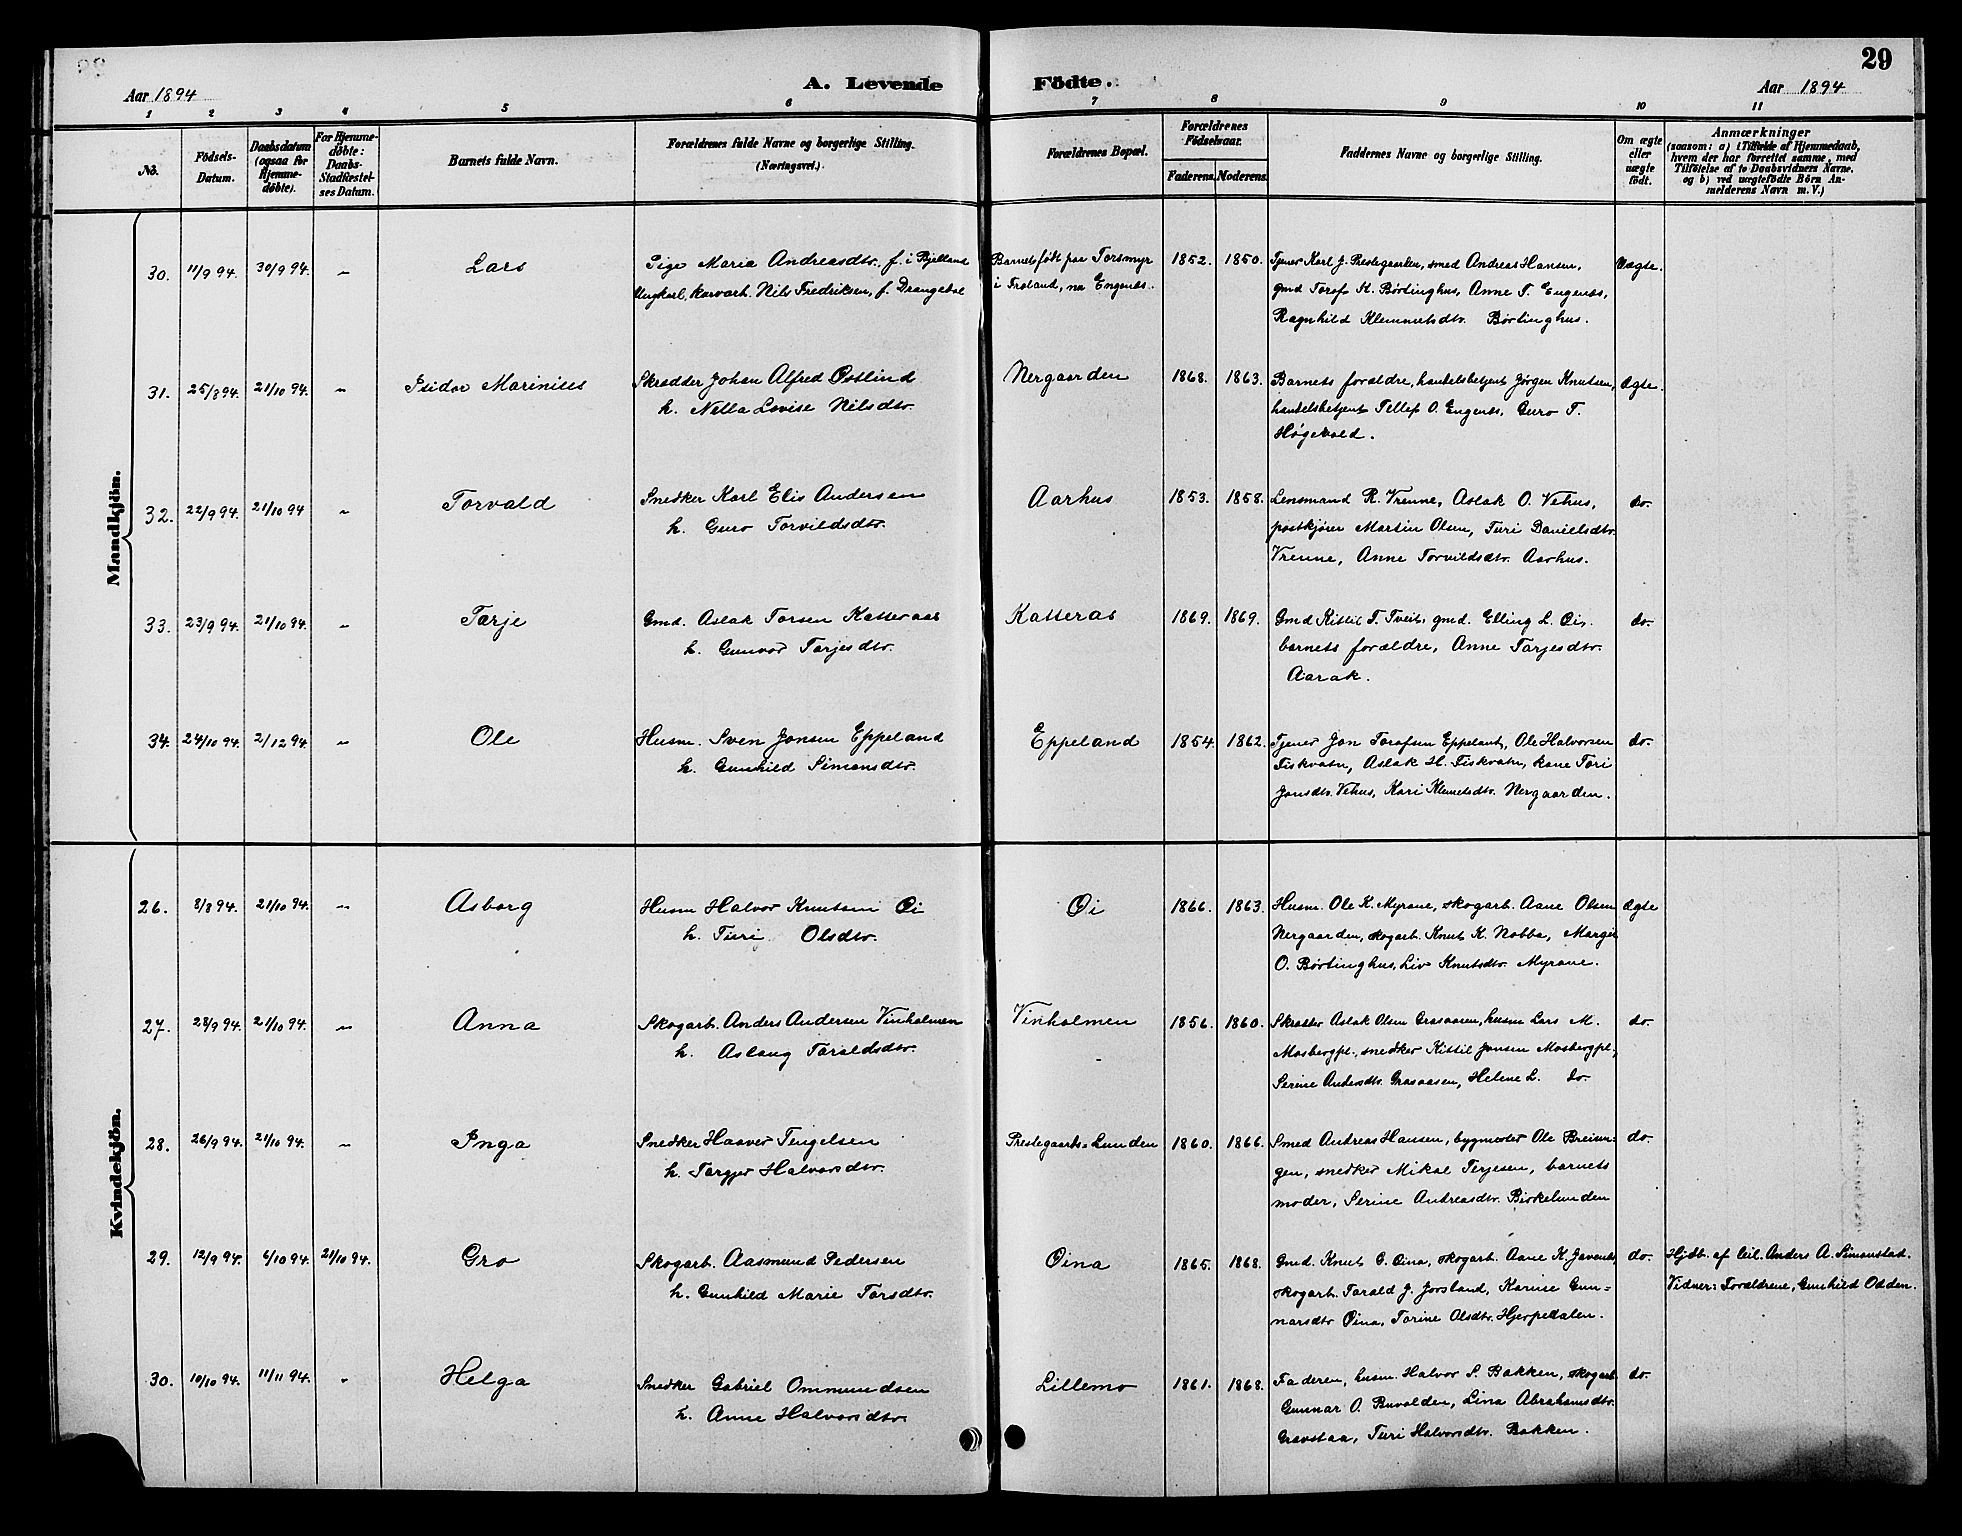 29
A. Levende Födte.
Aar 1894
Aar 1894
1 2 3 4 5 6 7 8 9 10 11
No.
Födsels-Datum.
Daabsdatum (ogsaa for Hjemme-döbte).
For Hjemme-döbte: Daabs-Stadfæstelses Datum.
Barnets fulde Navn.
Forældrenes fulde Navne og borgerlige Stilling. (Næringsvei.)
Forældrenes Bopæl.
Forældrenes Födselsaar.
Faderens. Moderens.
Faddernes Navne og borgerlige Stilling.
Om ægte eller uægte födt.
Anmærkninger
(saasom: a) i Tilfælde af Hjemmedaab,
hvem der har forrettet samme, med
Tilföielse af to Daabsvidners Navne,
og b) ved uægtefödte Börn An-
melderens Navn m. V.)
Mandkjön.
30. 11/9 94. 30/9 94. — Lars
Pige Maria Andreasdtr., f. i Bjelland
Ungkarl, harvarb. Nils Fredriksen, f. Drangedal
Barnet født paa Torsmyr
i Froland, nu Engenes.
1852. 1850.
Tjener Karl J. Prestegaarden, smed Andreas Hansen,
gmd Torof K. Børtinghus, Anne T. Engenes,
Ragnhild Klemmetsdtr. Børtinghus.
Uægte.
31. 25/8 94. 21/10 94. — Isidor Marinius
Skrædder Johan Alfred Östlind
h. Nella Lovise Nilsdtr.
Nergaarden
1868. 1863.
Barnets forældre, handelsbetjent Jørgen Knutsen,
handelsbetjent Tellef O. Engenes, Guro T.
Høgevold.
Ægte.
32. 22/9 94. 21/10 94 — Torvald
Snedker Karl Elis Andersen
h. Guro Torvildsdtr.
Aarhus
1853. 1858.
Lensmand R. Vrenne, Aslak O. Vehus,
postkjører Martin Olsen, Turi Danielsdtr.
Vrenne, Anne Torvildsdtr. Aarhus.
do.
33. 23/9 94. 21/10 94. — Tarje
Gmd. Aslak Torsen Katteraas
h. Gunvor Tarjesdtr.
Katteras
1869. 1869.
Gmd Kittil T. Tveit, gmd. Elling L. Øi,
barnets forældre, Anne Tarjesdtr.
Aarak.
do.
34. 24/10 94. 2/12 94. — Ole
Husm. Sven Jonsen Eppeland
h. Gunhild Simonsdtr.
Eppeland
1854. 1862.
Tjener Jon Torofsen Eppeland, Ole Halvorsen
Fiskvatn, Aslak H. Fiskvatn, kone Tori
Jonsdtr. Vehus, Kari Klemetsdtr. Nergaarden.
do.
Kvindekjön.
26. 8/8 94. 21/10 94. — Asborg
Husm Halvor Knutsen Øi
h. Turi Olsdtr.
Øi
1866. 1863.
Husm. Ole K. Myrane, skogarb. Aane Olsen
Nergaarden, skogarb. Knut K. Nobba, Margit
O. Børtinghus, Liv Knutsdtr. Myrane.
Ægte
27. 28/9 94. 21/10 94. — Anna
Skogarb. Anders Andersen Vinholmen
h. Aslaug Taraldsdtr.
Vinholmen
1856. 1860.
Skrædder Aslak Olsen Grasaasen, husm Lars M.
Mosbergpl., snedker Kittil Jonsen Mosbergpl.,
Serine Andersdtr. Grasaasen, Helene L. do.
do.
28. 26/9 94. 21/10 94. — Inga
Snedker Haaver Tengelsen
h. Torgjer Halvorsdtr.
Prestegaards-Lunden
1860. 1866.
Smed Andreas Hansen, bygmester Ole Breivin-
gen, snedker Mikal Terjesen, barnets
moder, Serine Andreasdtr. Birkelunden
do.
29. 12/9 94. 6/10 94. 21/10 94. Gro
Skogarb. Aasmund Pedersen
h. Gunhild Marie Torsdtr.
Øina
1865. 1868.
Gmd. Knut G. Øina, skogarb. Aane K. Javenes,
skogarb. Tarald J. Jorsland, Karine Gun-
narsdtr Øina, Torine Olsdtr. Hjerpedalen.
do.
Hjdb. af leil. Anders A. Simonstad.
Vidner: Forældrene, Gunhild Odden.
30. 10/10 94. 11/11 94. — Helga
Snedker Gabriel Ommundsen
h. Anne Halvorsdtr.
Lillemo
1861. 1868.
Faderen, husm. Halvor S. Bakken, skogarb.
Gunnar O. Buvolden, Lina Abrahamsdtr.
Gravstaa, Turi Halvorsdtr. Bakken.
do.